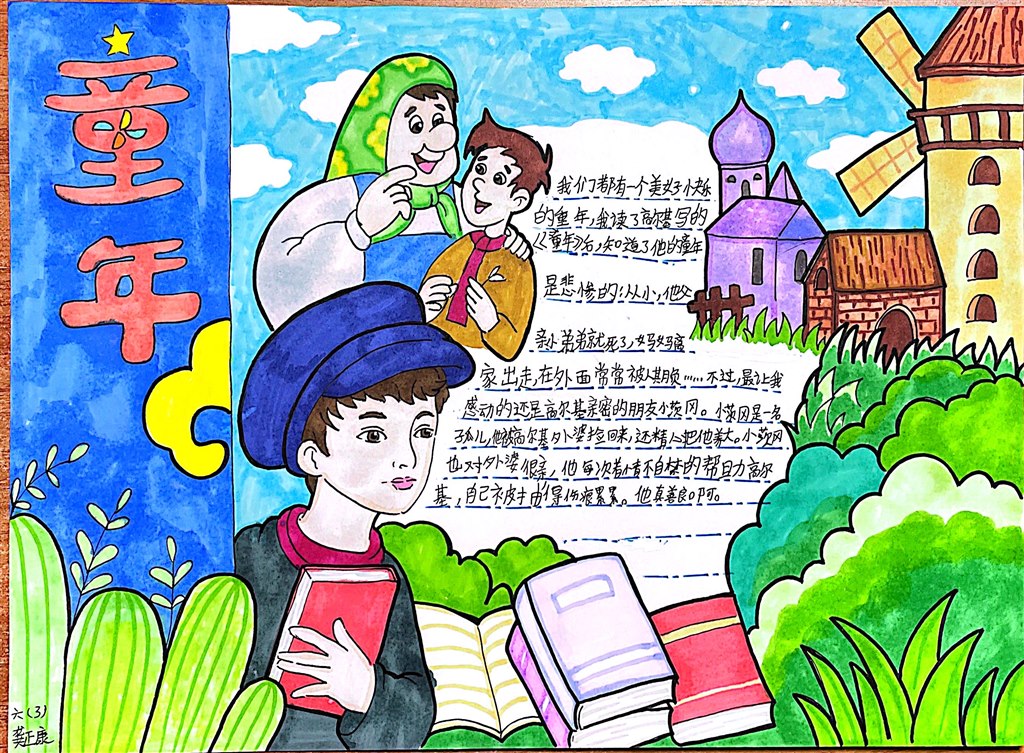 童年
我们都有一个美好快乐
的童年,我读了高尔基写的
《童年》后,知道了他的童年
是悲惨的:从小,他父
亲小弟弟就死了,妈妈离
家出走,在外面常常被人欺……不过,最让我
感动的还是高尔基亲密的朋友小茨冈。小茨冈是一名
孤儿,他被高尔基外婆捡回来,还精人把他养大。小茨冈
也对外婆很亲,他每次看情不自禁的帮助高尔
基,自己被打得伤痕累累。他真善良啊。
六(3)
龚正康